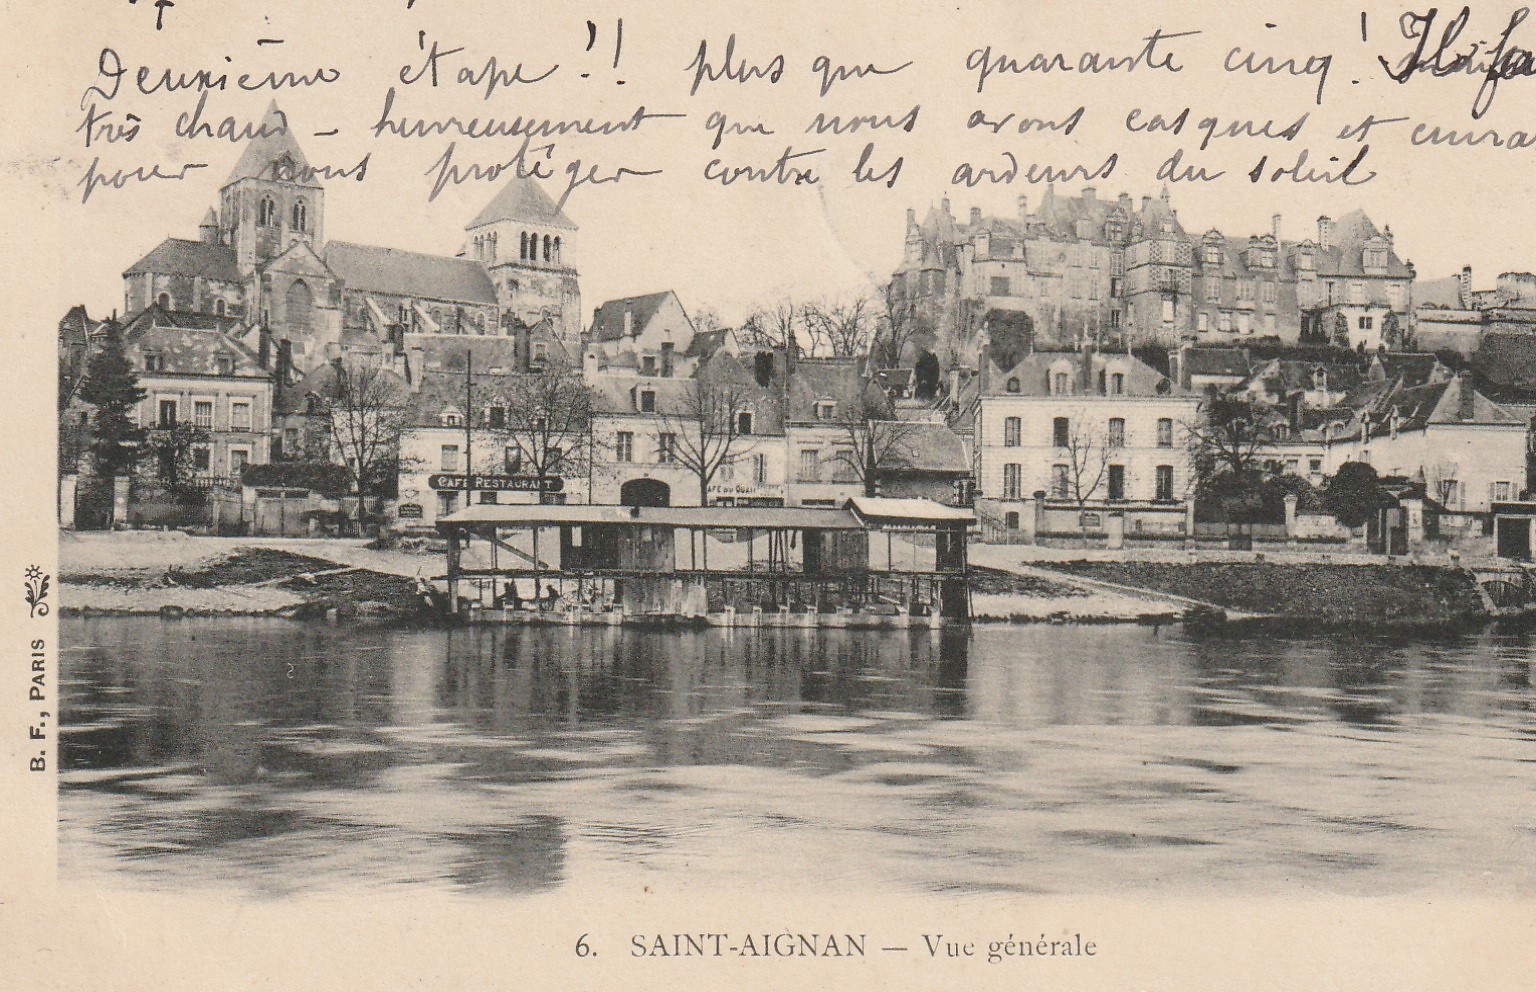 Deuxième étape !! plus que quarante cinq ! Il fa
très chaud – heureusement que nous avons casques et cuira
pour nous protéger contre les ardeurs du soleil
CAFÉ RESTAURANT
CAFÉ DU QUAI
B. F., PARIS
6. SAINT-AIGNAN — Vue générale